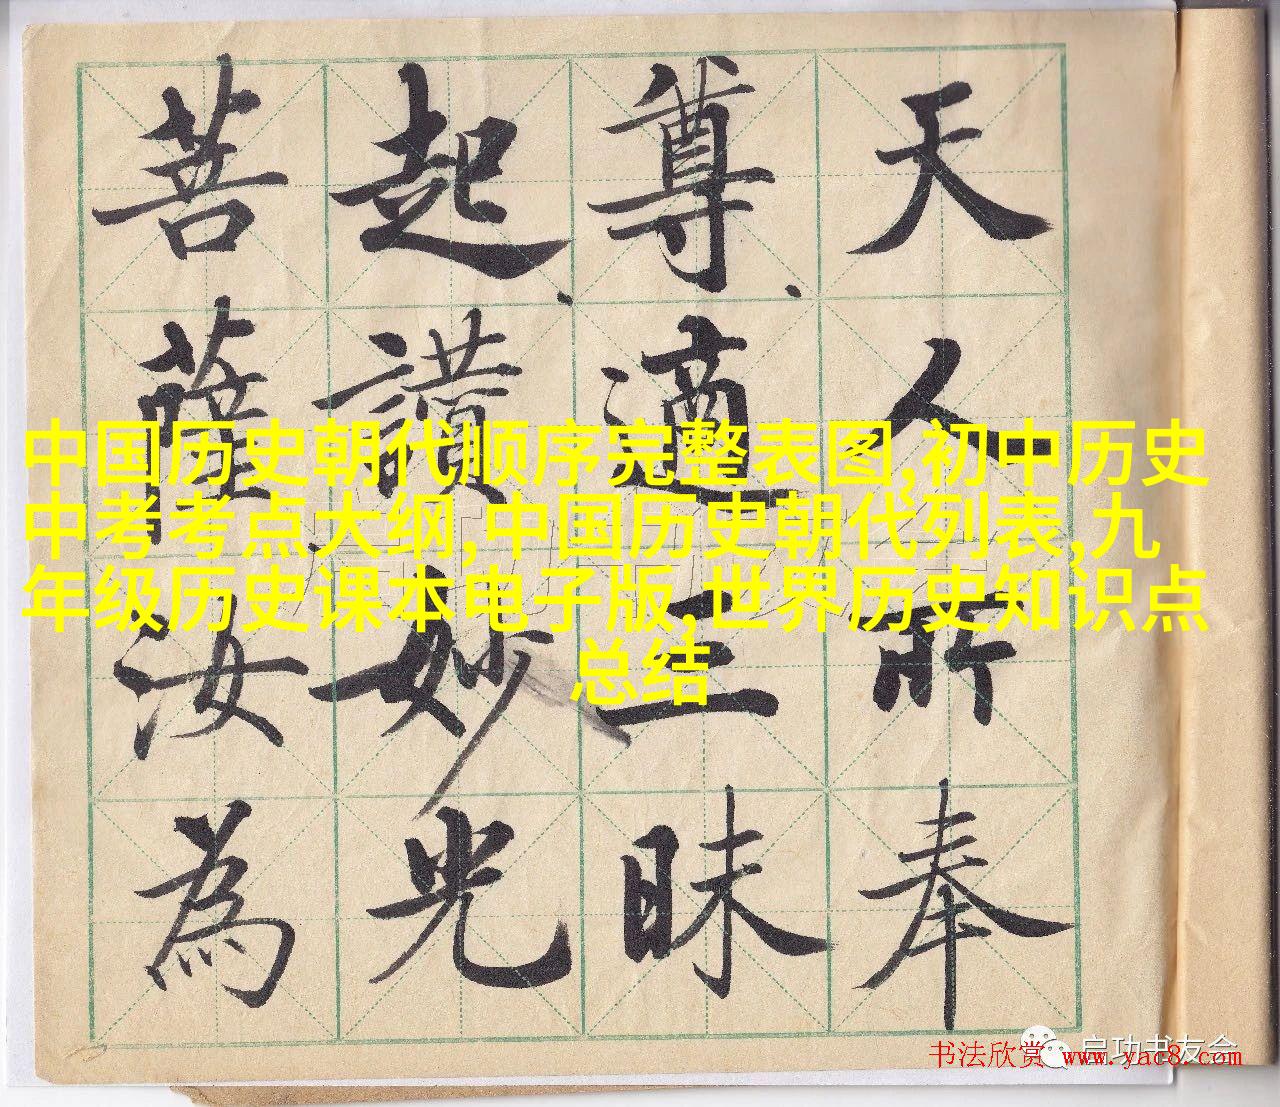 天人所奉
尊適三昧
起讚妙光
菩薩汝為
中国历史朝代顺序完整表图,初中历史
中考考点大纲,中国历史朝代列表,九
年级历史课本电子版,世界历史知识点
总结
启功书友会
书法欣赏 www.yac8.com